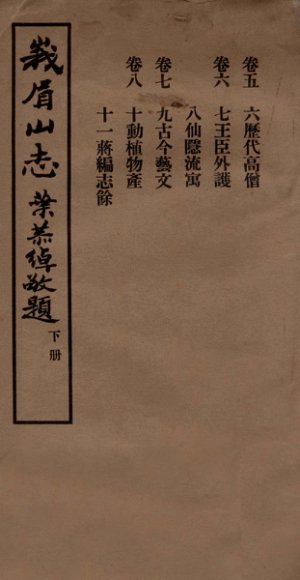 卷五　六歷代高僧
卷六　七王臣外護
八仙隱流寓
卷七　九古今藝文
卷八　十動植物產
十一蔣編志餘
峩眉山志 葉恭綽敬題 下册